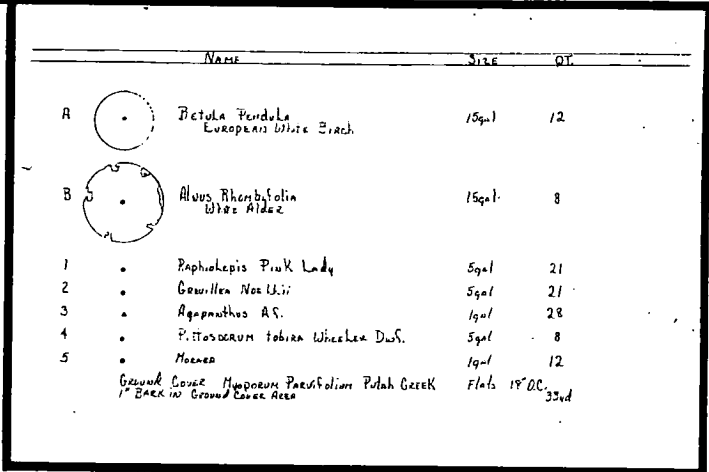 NAME SIZE QT.
A Betula Pendula 15gal 12
European White Birch
B Alnus Rhombifolia 15gal. 8
White Alder
1 Raphiolepis Pink Lady 5gal 21
2 Grevillea Noellii 5gal 21
3 Agapanthus AF. 1gal 28
4 Pittosporum tobira Wheeler Dwf. 5gal 8
5 Moraea 1gal 12
Ground Cover Myoporum Parvifolium Putah Creek Flats 18" O.C.
1" Bark in Ground Cover Area 33yd